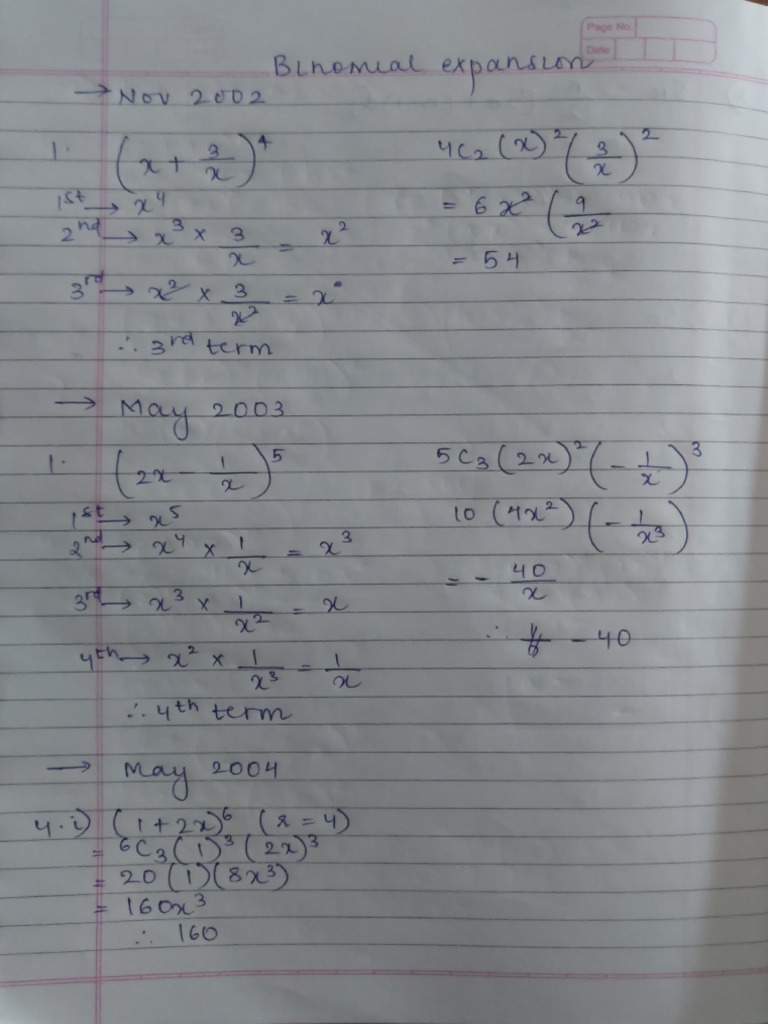 Page No.
Date
Binomial expansion
→ Nov 2002
1. (x + 3/x)^4
1st → x^4
2nd → x^3 × 3/x = x^2
3rd → x^2 × 3/x^2 = x°
∴ 3rd term
4C2 (x)^2 (3/x)^2
= 6 x^2 (9/x^2
= 54
→ May 2003
1. (2x - 1/x)^5
1st → x^5
2nd → x^4 × 1/x = x^3
3rd → x^3 × 1/x^2 = x
4th → x^2 × 1/x^3 = 1/x
∴ 4th term
5C3 (2x)^2 (- 1/x)^3
10 (4x^2) (- 1/x^3)
= - 40/x
∴ - 40
→ May 2004
4. i) (1 + 2x)^6 (r = 4)
= 6C3 (1)^3 (2x)^3
= 20 (1) (8x^3)
= 160x^3
∴ 160